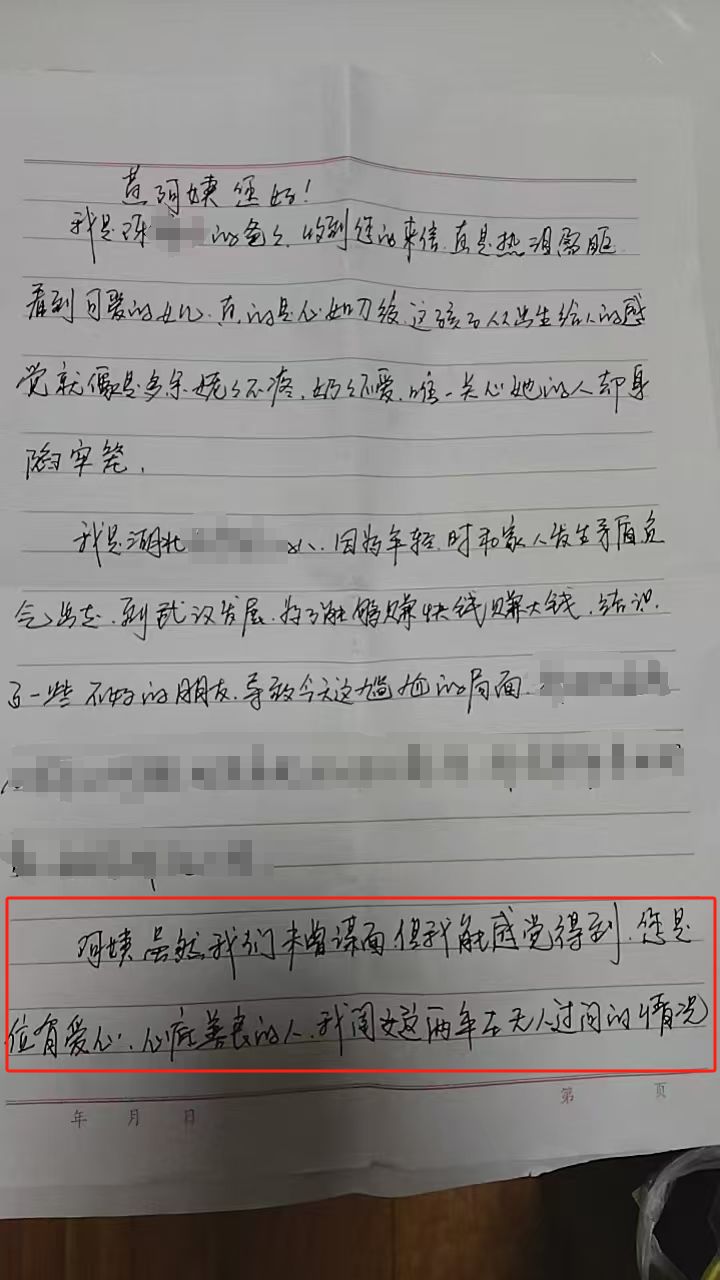 黄阿姨您好!
我是陈 的爸爸,收到您的来信,真是热泪盈眶
看到可爱的女儿,真的是心如刀绞,这孩子从出生给人的感
觉就像是多余,姥姥不疼,奶奶不爱,唯一关心她的人却身
陷牢笼,
我是湖北 人,因为年轻时和家人发生矛盾负
气出走,到武汉发展,为了能够赚快钱赚大钱,结识
了一些不好的朋友,导致今天这尴尬的局面,
阿姨虽然我们未曾谋面,但我能感觉得到,您是
位有爱心,心底善良的人,我闺女这两年在无人过问的情况
年 月 日
第 页